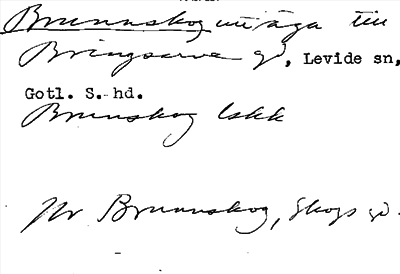 Brunnskog utäga till
Bringsarve gd, Levide sn,
Gotl. S. hd.
Brunnskog Lskk
Nr Brunnskog, Skogs gd.